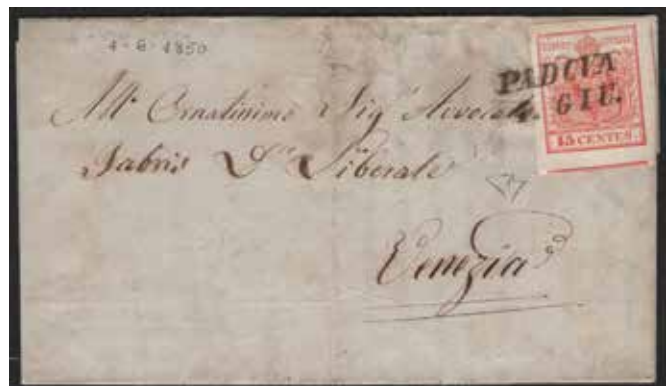 4-6-1850
PADOVA
6 GIU.
15 CENTES.
All' Ornatissimo Sig.r Avvocato
Fabris D.r Liberale
Venezia